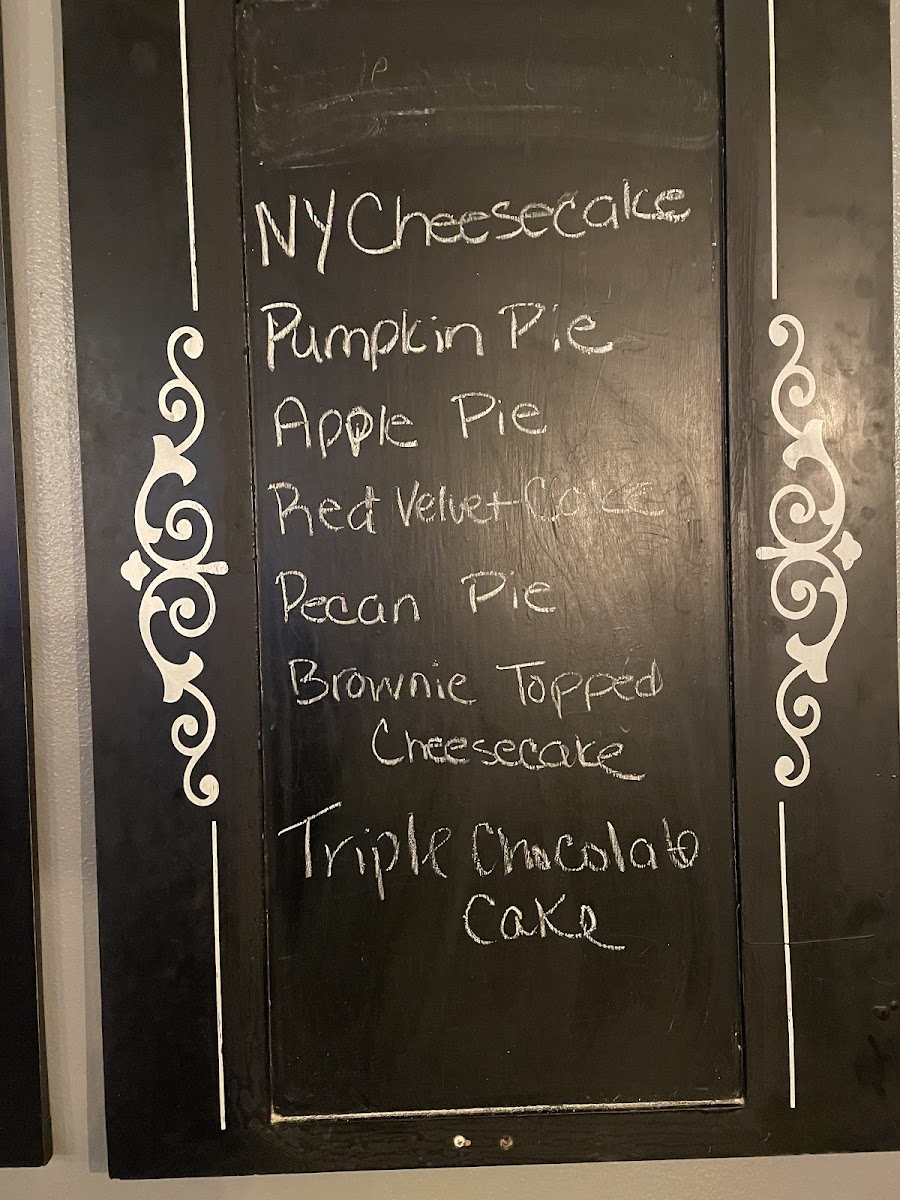 NY Cheesecake
Pumpkin Pie
Apple Pie
Red Velvet Cake
Pecan Pie
Brownie Topped
Cheesecake
Triple Chocolate
Cake